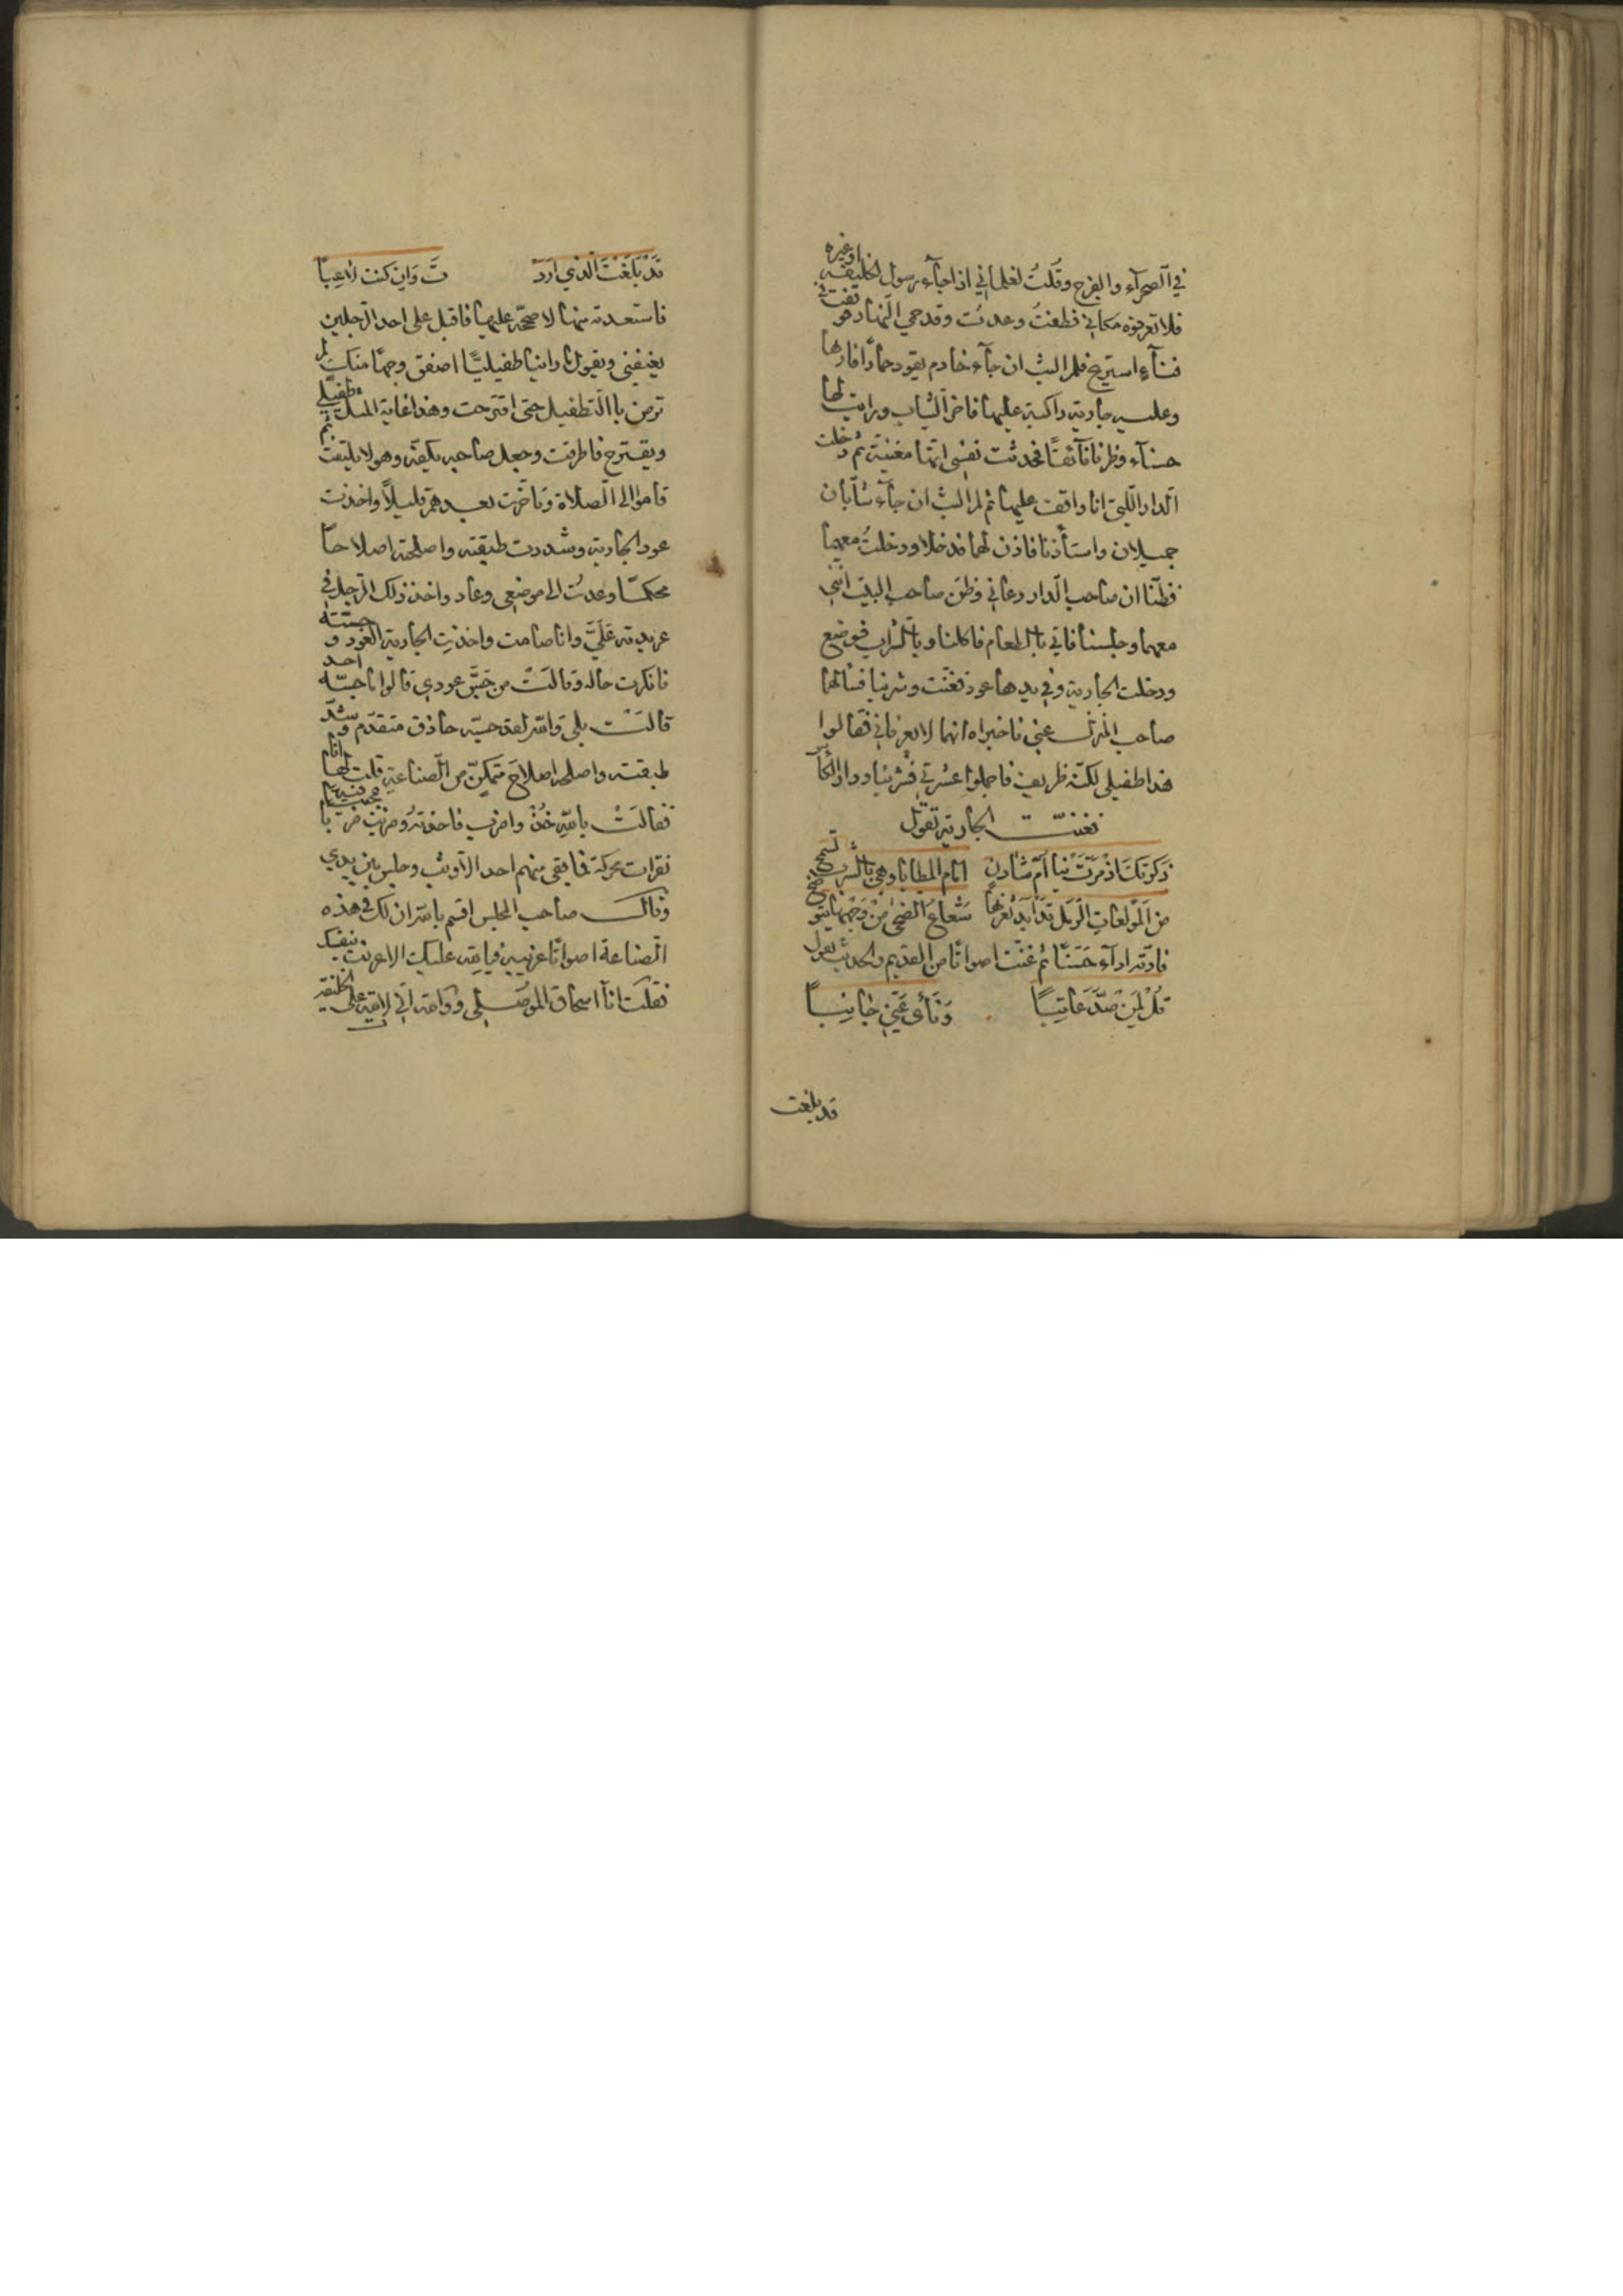 في الصحرآء والفرج وقلت لغلماني اذا جآء رسول الخليفه اوغيره
فلا تعرفوه مكاني فطفت وعدت وقد حمي النهار فوقفت في
فنآء استريح فلم البث ان جآء خادم يقود حمارًا فارها
وعليه جارية راكبة عليها فاخر الثياب ورايت لها
حسنآء وظرفا فآئقًا فحدثت نفسي انها مغنية ثم دخلت
الدار اللتي انا واقف عليها ثم لم البث ان جآء شآبان
جميلان واستأذنا فاذن لهما فدخلا ودخلت معهما
فظنا ان صاحب الدار دعاني وظن صاحب البيت انني
معهما وجلسنا فاتي بالطعام فاكلنا وبالشراب فوضع
ودخلت الجارية وفي يدها عود فغنت وشربنا فسالهما
صاحب المنزل عني فاخبراه انهما لا يعرفاني فقالوا
هذا طفيلي لكنه ظريف فاجملوا عشرتي فشربنا ودار الكآس
فغنت الجارية تقول
ذكرتك اذ مرت بنا ام شادن امام المطايا وهي بالسرب تسنح
من المولعات الرمل شعاع الضحى من وجهها يتوضح
فادته ادآء حسنًا ثم غنت اصواتًا من القديم والحديث تقول
قل لمن صد عاتبًا ونأى عني جانبًا
قد بلغت
قد بلغت الذي ارد ت وان كنت لاعبًا
فاستعدته منها لاصححه عليها فاقبل على احد الرجلين
يعنفني ويقول ما راينا طفيليًا اصفق وجهًا منك لم
ترض بالتطفيل حتى اقترحت وهذا غاية المثل طفيلي
ويقترح فاطرقت وجعل صاحبه يكفه وهو لا يلتفت ثم
قاموا الى الصلاة وتأخرت بعدهم قليلًا واخذت
عود الجارية وشددت طبقته واصلحته اصلاحًا
محكمًا وعدت الى موضعي وعاد واخذ ذلك الرجل في
عربدته علي وانا صامت واخذت الجارية العود وجسته
فانكرت حاله وقالت من جس عودي قالوا ما جسه احد
قالت بلى والله لقد جسه حاذق متقدم وشد
طبقته واصلحه اصلاح متمكن من الصناعة قلت لها انا
فقالت بالله خذ واضرب فاخذته وضربت ضربًا عجيبًا فيه
نقرات محركة فما بقي منهم احد الا وثب وجلس بين يدي
وقال صاحب المجلس اقسم بالله ان لك في هذه
الصناعة اصواتًا غريبة فبالله عليك الا عرفت بنفسك
فقلت انا اسحاق الموصلي ووالله اني لاتيه على الخليفة